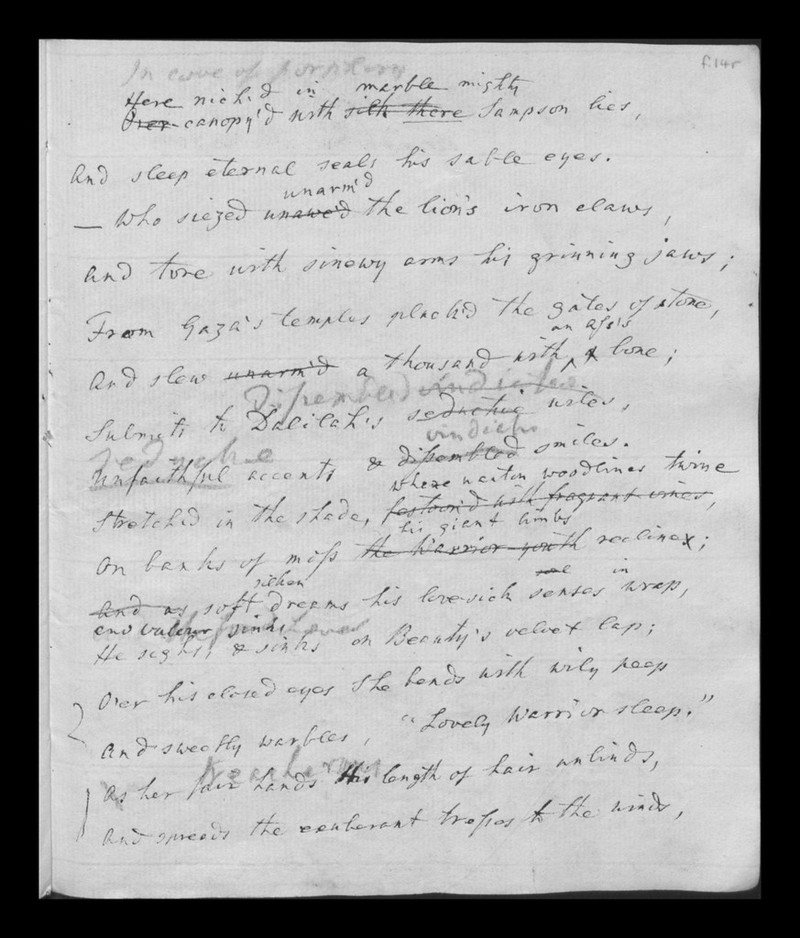 f.14r
In cave of porphory
Here nich'd in marble mighty
Over canopy'd with silk there Sampson lies,
And sleep eternal seals his sable eyes.
unarm'd
— Who siezed unawe'd the lion's iron claws,
And tore with sinewy arms his grinning jaws;
From Gaza's temples pluck'd the gates of stone,
an aſs's
And slew unarm'd a thousand with ^ a bone;
Diſsembled
Submits to Dalilah's seductive wiles,
vindictive
Unfaithful accents & diſsembled smiles.
where wanton woodbines twine
Stretched in the shade, festoon'd with fragrant vines,
his giant limbs
On banks of moſs the Warrior youth reclines;
silken in
And as soft dreams his lovesick senses wrap,
and valour sinks
He sighs, & sinks on Beauty's velvet lap;
O'er his closed eyes She bends with wily peep
And sweetly warbles, "Lovely Warrior sleep."
treacherous
As her fair hands His length of hair unbinds,
And spreads the exuberant treſses to the winds,